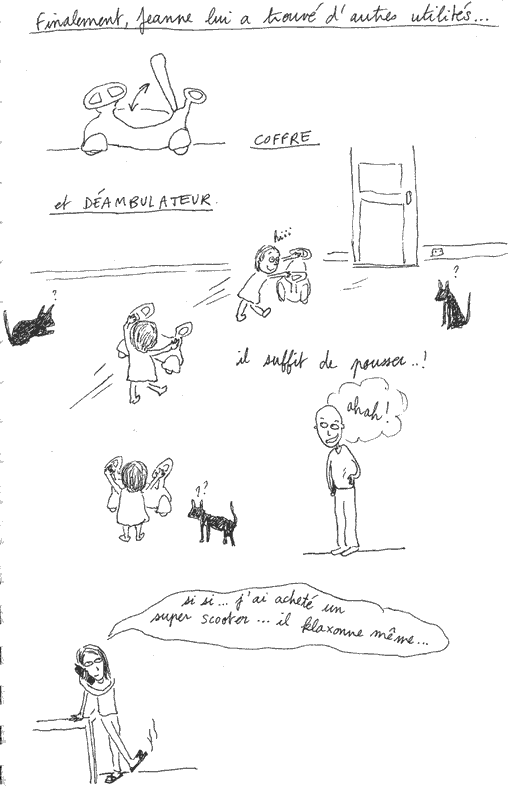 Finalement, Jeanne lui a trouvé d'autres utilités...
COFFRE
et DÉAMBULATEUR.
hiii
?
?
il suffit de pousser..!
ahah!
??
si si... j'ai acheté un
super scooter... il klaxonne même...